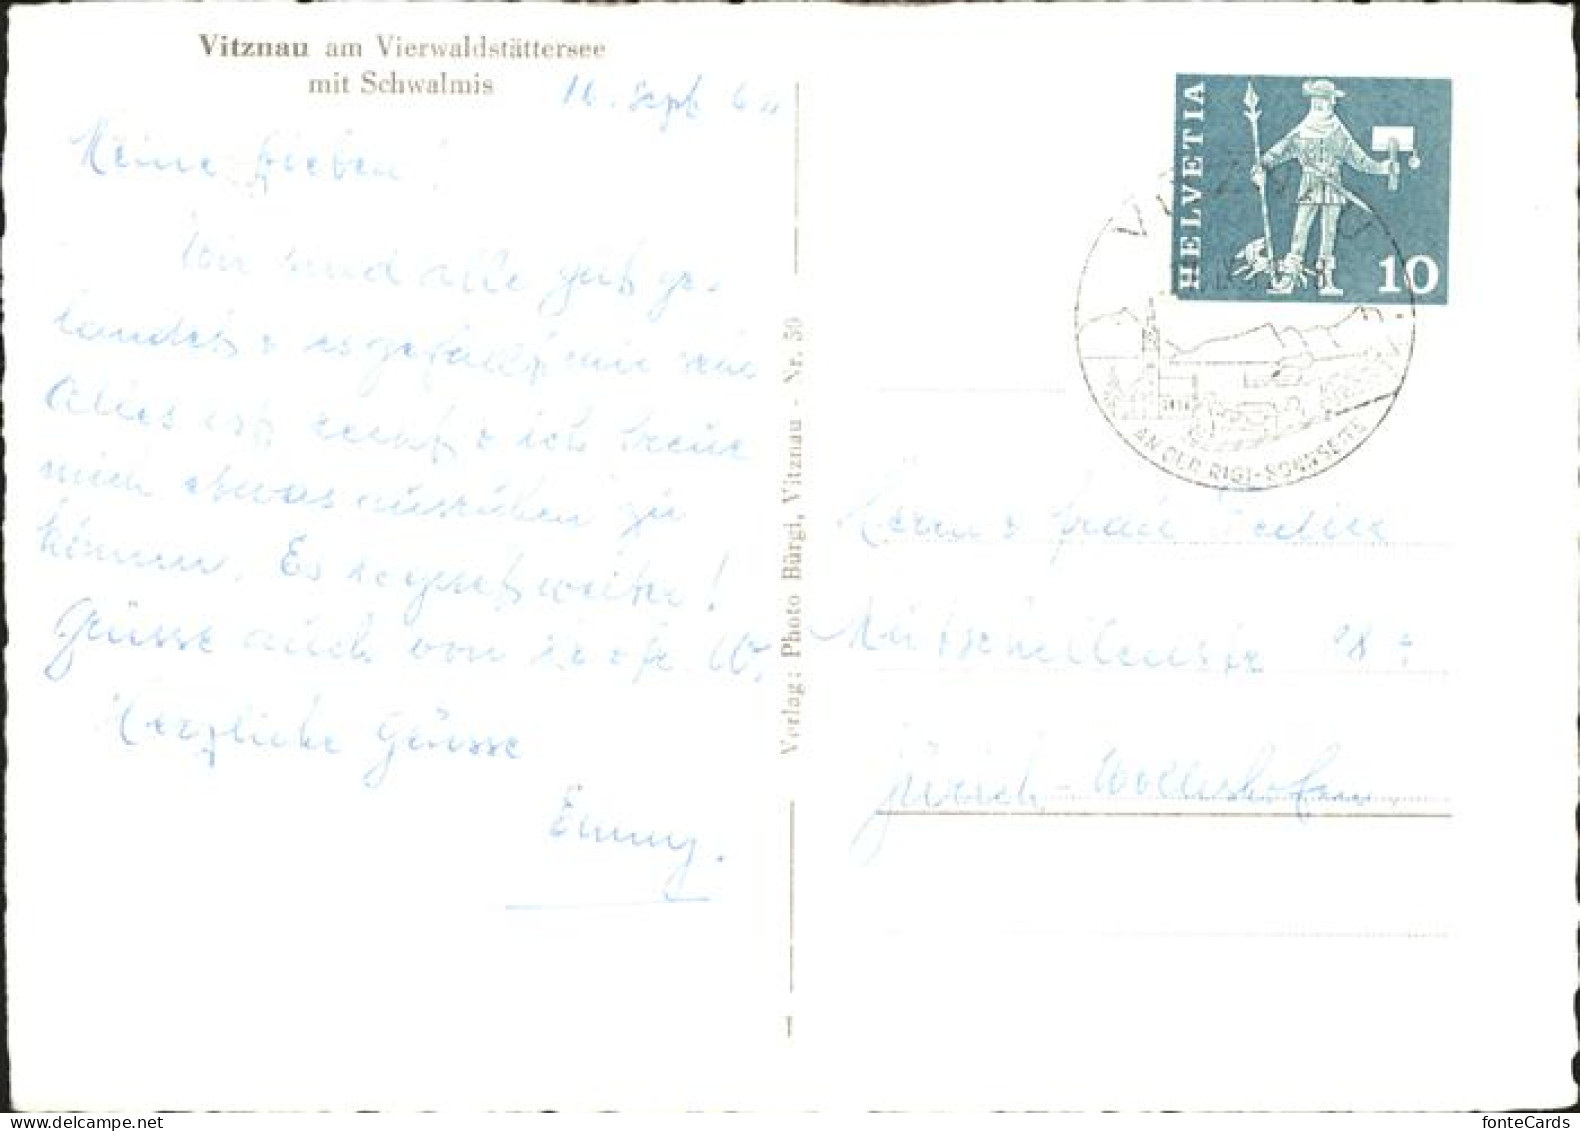 Vitznau am Vierwaldstättersee
mit Schwalmis
Sept 60
Meine Lieben!
Wir sind alle gut ge-
landet & es gefällt mir sehr
Alles ist & ich freue
mich etwas ausruhen zu
können. Es regnet weiter!
Grüsse auch von
Herzliche Grüsse
Emmy.
Verlag: Photo Bürgi, Vitznau - Nr. 50
T
HELVETIA
10
VITZNAU
AN DER RIGI-SONNSEITE
Herrn & Frau
Mutschellenstr
Zürich-Wollishofen
fonteCards
delcampe.net